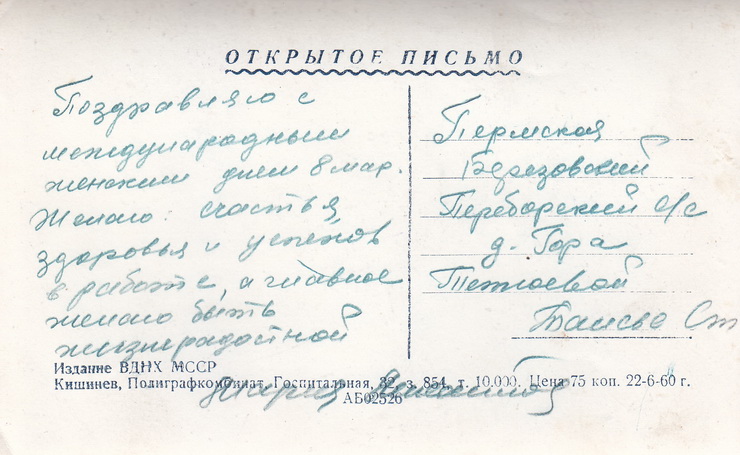 ОТКРЫТОЕ ПИСЬМО
Поздравляю с
международным
женским днем 8 мар.
Желаю: счастья,
здоровья и успехов
в работе, а главное
желаю быть
жизнерадостной
Пермская
Березовский
Переборский с/с
д. Гора
Издание ВДНХ МССР
Кишинев, Полиграфкомбинат, Госпитальная, 32, з. 854, т. 10.000. Цена 75 коп. 22-6-60 г.
АБ02526